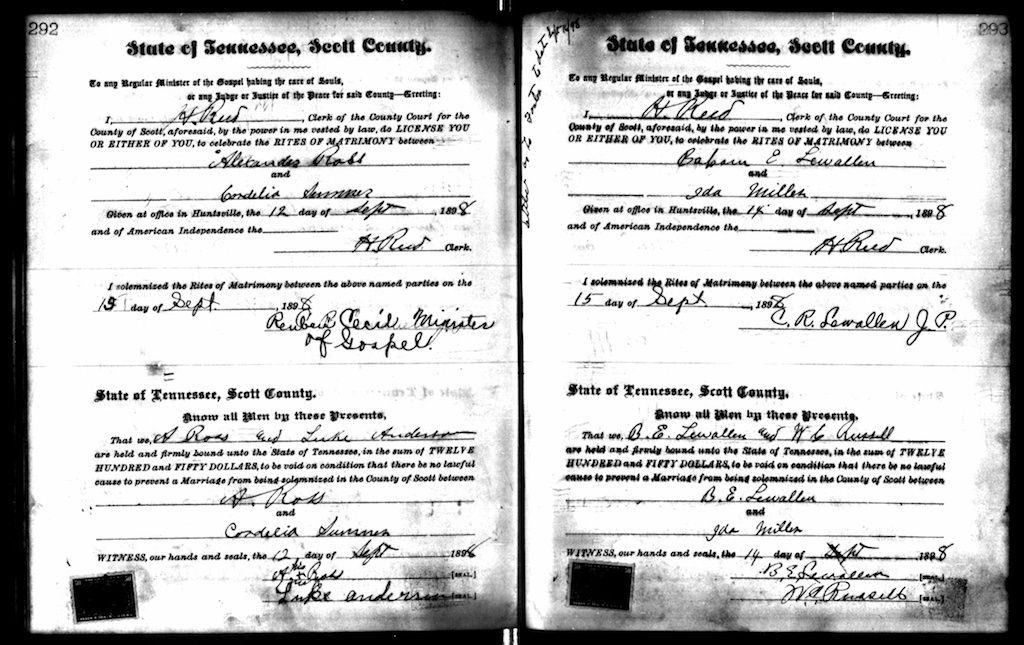 292
State of Tennessee, Scott County.
To any Regular Minister of the Gospel having the care of Souls,
or any Judge or Justice of the Peace for said County—Greeting:
I, H Reed, Clerk of the County Court for the
County of Scott, aforesaid, by the power in me vested by law, do LICENSE YOU
OR EITHER OF YOU, to celebrate the RITES OF MATRIMONY between
Alexander Ross
and
Cordelia Sumner
Given at office in Huntsville, the 12 day of Sept, 1898
and of American Independence the
H Reed Clerk.
I solemnized the Rites of Matrimony between the above named parties on the
15 day of Sept. , 1898
Cecil Minister
of Gospel.
State of Tennessee, Scott County.
Know all Men by these Presents,
That we, A Ross and Luke Anderson
are held and firmly bound unto the State of Tennessee, in the sum of TWELVE
HUNDRED and FIFTY DOLLARS, to be void on condition that there be no lawful
cause to prevent a Marriage from being solemnized in the County of Scott between
A. Ross
and
Cordelia Sumner
WITNESS, our hands and seals, the 12 day of Sept 1898
A his x Ross [SEAL.]
Luke anderson [SEAL.]
293
State of Tennessee, Scott County.
To any Regular Minister of the Gospel having the care of Souls,
or any Judge or Justice of the Peace for said County—Greeting:
I, H. Reed, Clerk of the County Court for the
County of Scott, aforesaid, by the power in me vested by law, do LICENSE YOU
OR EITHER OF YOU, to celebrate the RITES OF MATRIMONY between
E. Lewallen
and
Ida Miller
Given at office in Huntsville, the 14 day of Sept, 1898
and of American Independence the
H Reed Clerk.
I solemnized the Rites of Matrimony between the above named parties on the
15 day of Sept , 1898
C. R. Lewallen J. P.
State of Tennessee, Scott County.
Know all Men by these Presents,
That we, B. E. Lewallen and W C Russell
are held and firmly bound unto the State of Tennessee, in the sum of TWELVE
HUNDRED and FIFTY DOLLARS, to be void on condition that there be no lawful
cause to prevent a Marriage from being solemnized in the County of Scott between
B. E. Lewallen
and
Ida Miller
WITNESS, our hands and seals, the 14 day of Sept 1898
B. E. Lewallen [SEAL.]
Russell [SEAL.]